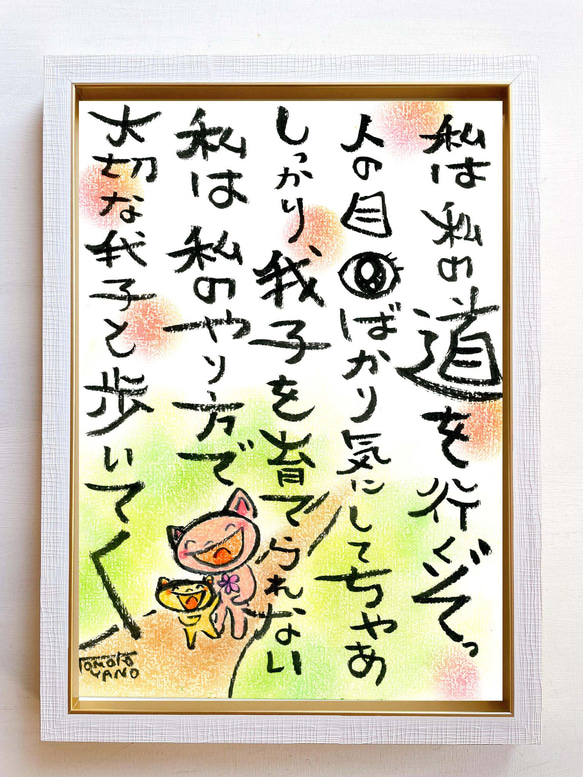 私は私の道を行くぞっ
人の目ばかり気にしてちゃあ
しっかり我子を育てられない
私は私のやり方で
大切な我子と歩いてく
TOMOKO
YANO